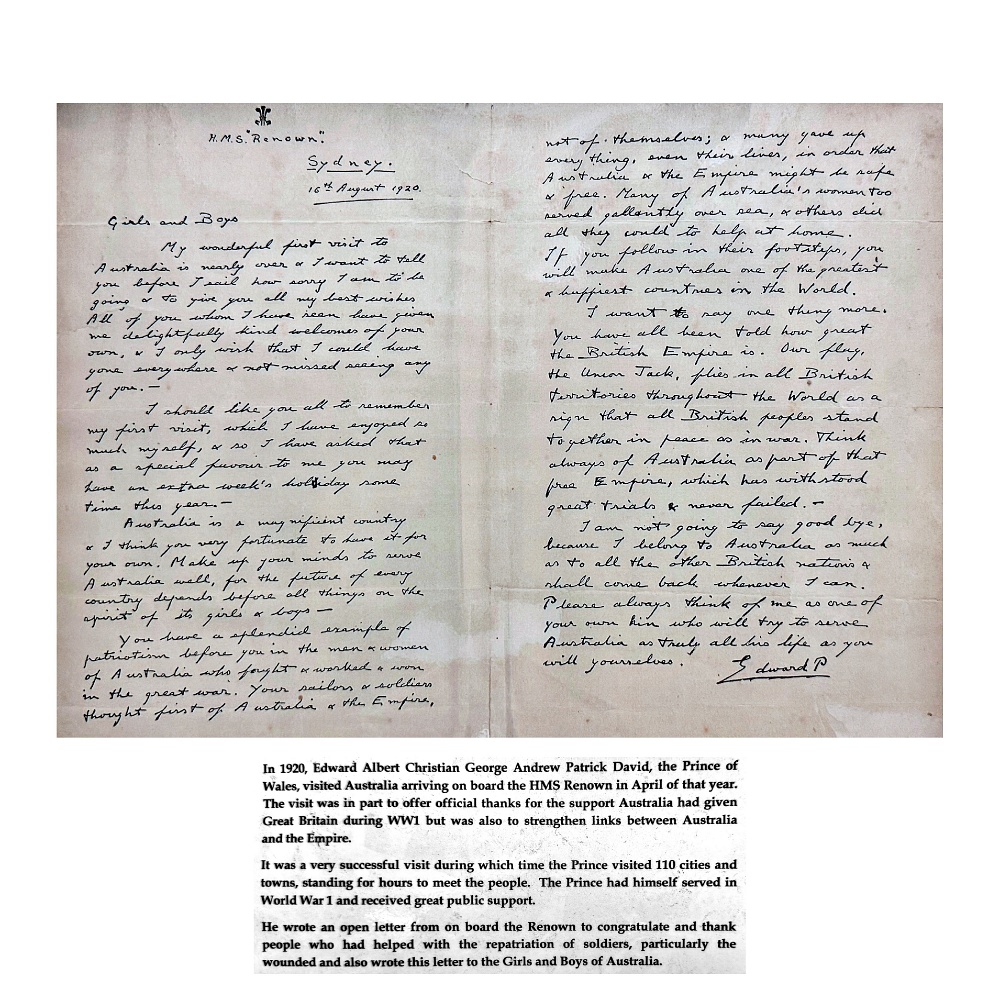 H.M.S. "Renown".
Sydney.
16th August 1920.
Girls and Boys
My wonderful first visit to
Australia is nearly over & I want to tell
you before I sail how sorry I am to be
going & to give you all my best wishes
All of you whom I have seen have given
me delightfully kind welcomes of your
own, & I only wish that I could have
gone everywhere & not missed seeing any
of you. —
I should like you all to remember
my first visit, which I have enjoyed so
much myself, & so I have asked that
as a special favour to me you may
have an extra week's holiday some
time this year. —
Australia is a magnificent country
& I think you very fortunate to have it for
your own. Make up your minds to serve
Australia well, for the future of every
country depends before all things on the
spirit of its girls & boys —
You have a splendid example of
patriotism before you in the men & women
of Australia who fought & worked & won
in the great war. Your sailors & soldiers
thought first of Australia & the Empire,
not of themselves; & many gave up
everything, even their lives, in order that
Australia & the Empire might be safe
& free. Many of Australia's women too
served gallantly over sea, & others did
all they could to help at home.
If you follow in their footsteps, you
will make Australia one of the greatest
& happiest countries in the World.
I want to say one thing more.
You have all been told how great
the British Empire is. Our flag,
the Union Jack, flies in all British
territories throughout the World as a
sign that all British peoples stand
together in peace as in war. Think
always of Australia as part of that
free Empire, which has withstood
great trials & never failed. —
I am not going to say good bye,
because I belong to Australia as much
as to all the other British nations &
shall come back whenever I can.
Please always think of me as one of
your own kin who will try to serve
Australia as truly all his life as you
will yourselves.
Edward P
In 1920, Edward Albert Christian George Andrew Patrick David, the Prince of
Wales, visited Australia arriving on board the HMS Renown in April of that year.
The visit was in part to offer official thanks for the support Australia had given
Great Britain during WW1 but was also to strengthen links between Australia
and the Empire.
It was a very successful visit during which time the Prince visited 110 cities and
towns, standing for hours to meet the people. The Prince had himself served in
World War 1 and received great public support.
He wrote an open letter from on board the Renown to congratulate and thank
people who had helped with the repatriation of soldiers, particularly the
wounded and also wrote this letter to the Girls and Boys of Australia.